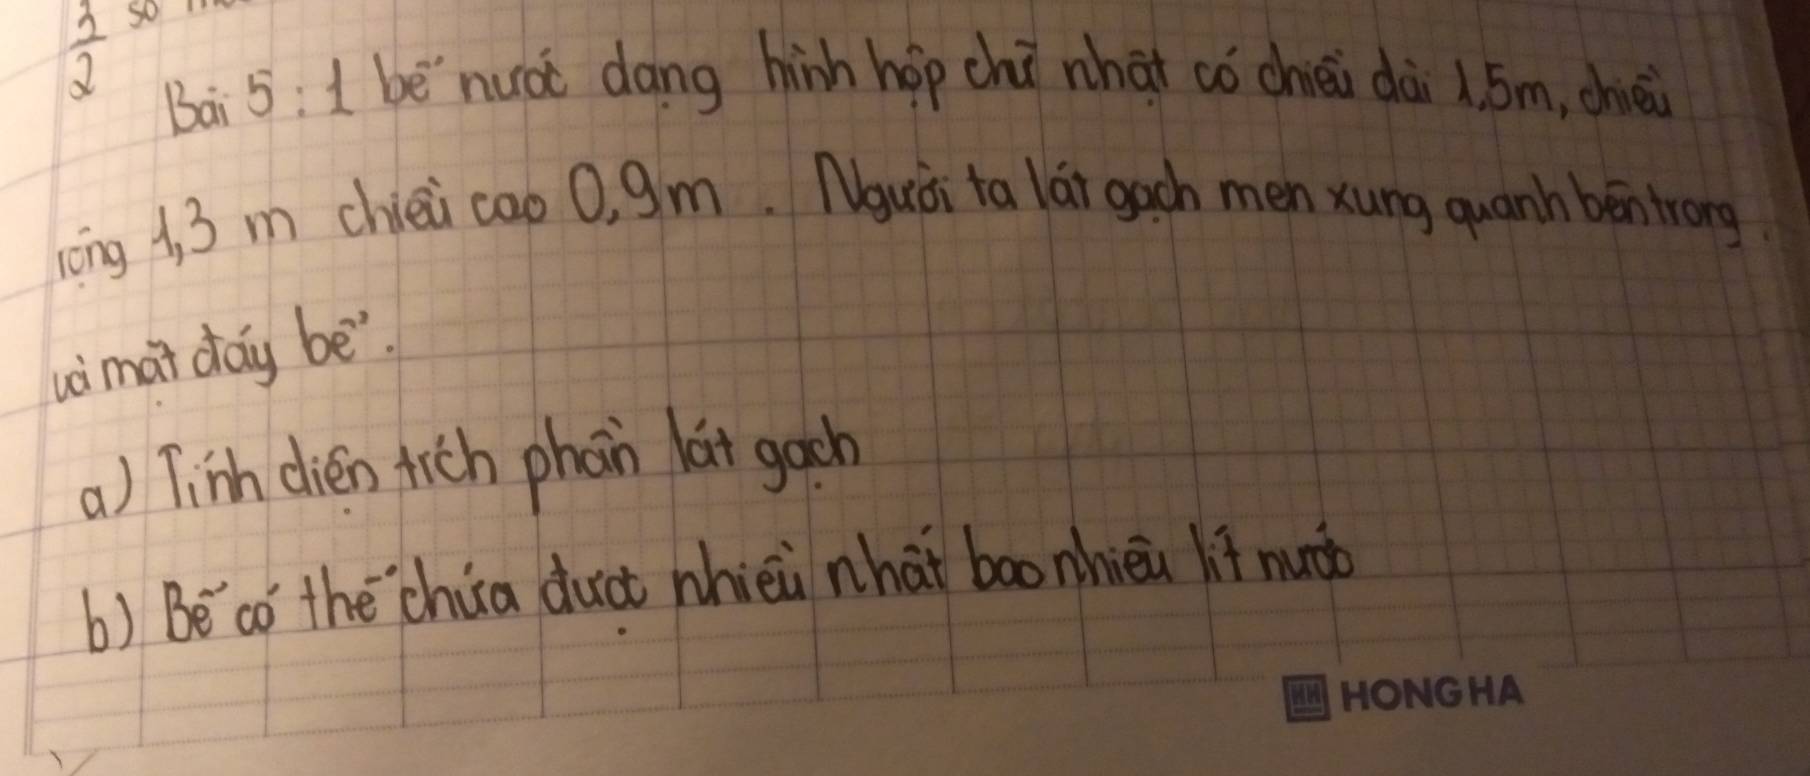 1/2 so
Bài 5: 1 bể nước dạng hình hộp chữ nhật có chiều dài 1,5m, chiều
rộng 1,3 m chiều cao 0,9m. Người ta lát gạch men xung quanh bên trong
và mặt đáy bể.
a) Tính diện tích phần lát gạch
b) Bể có thể chứa được nhiều nhất bao nhiêu lít nước
HONG HA